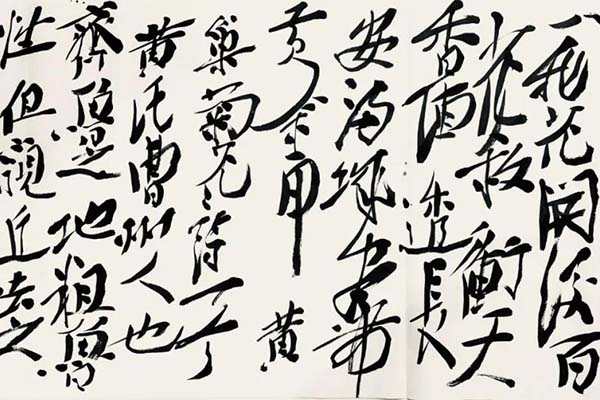 八我花開後百
花殺衝天
香陣透長
安滿城盡帶
黃金甲 黃
巢菊花詩
黃氏曹州人也
齊地粗魯
性但觀近古之